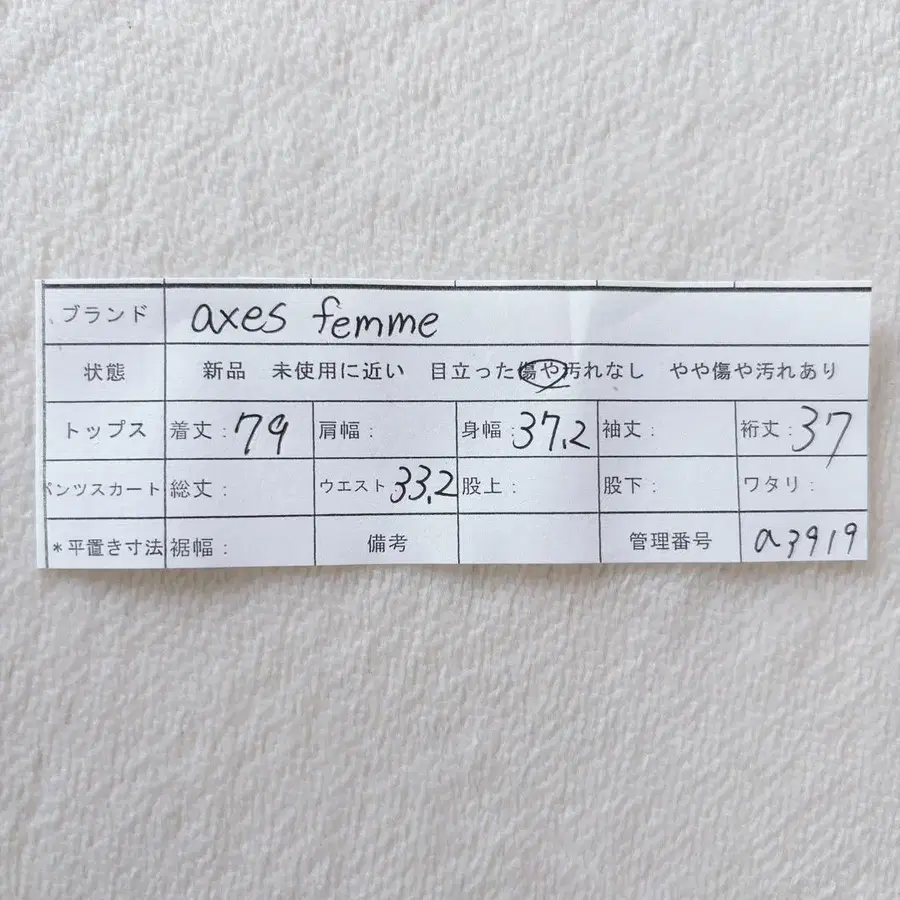 ブランド axes femme
状態 新品 未使用に近い 目立った傷や汚れなし やや傷や汚れあり
トップス 着丈: 79 肩幅: 身幅: 37.2 袖丈: 裄丈: 37
パンツスカート 総丈: ウエスト 33.2 股上: 股下: ワタリ:
*平置き寸法 裾幅: 備考 管理番号 a3919